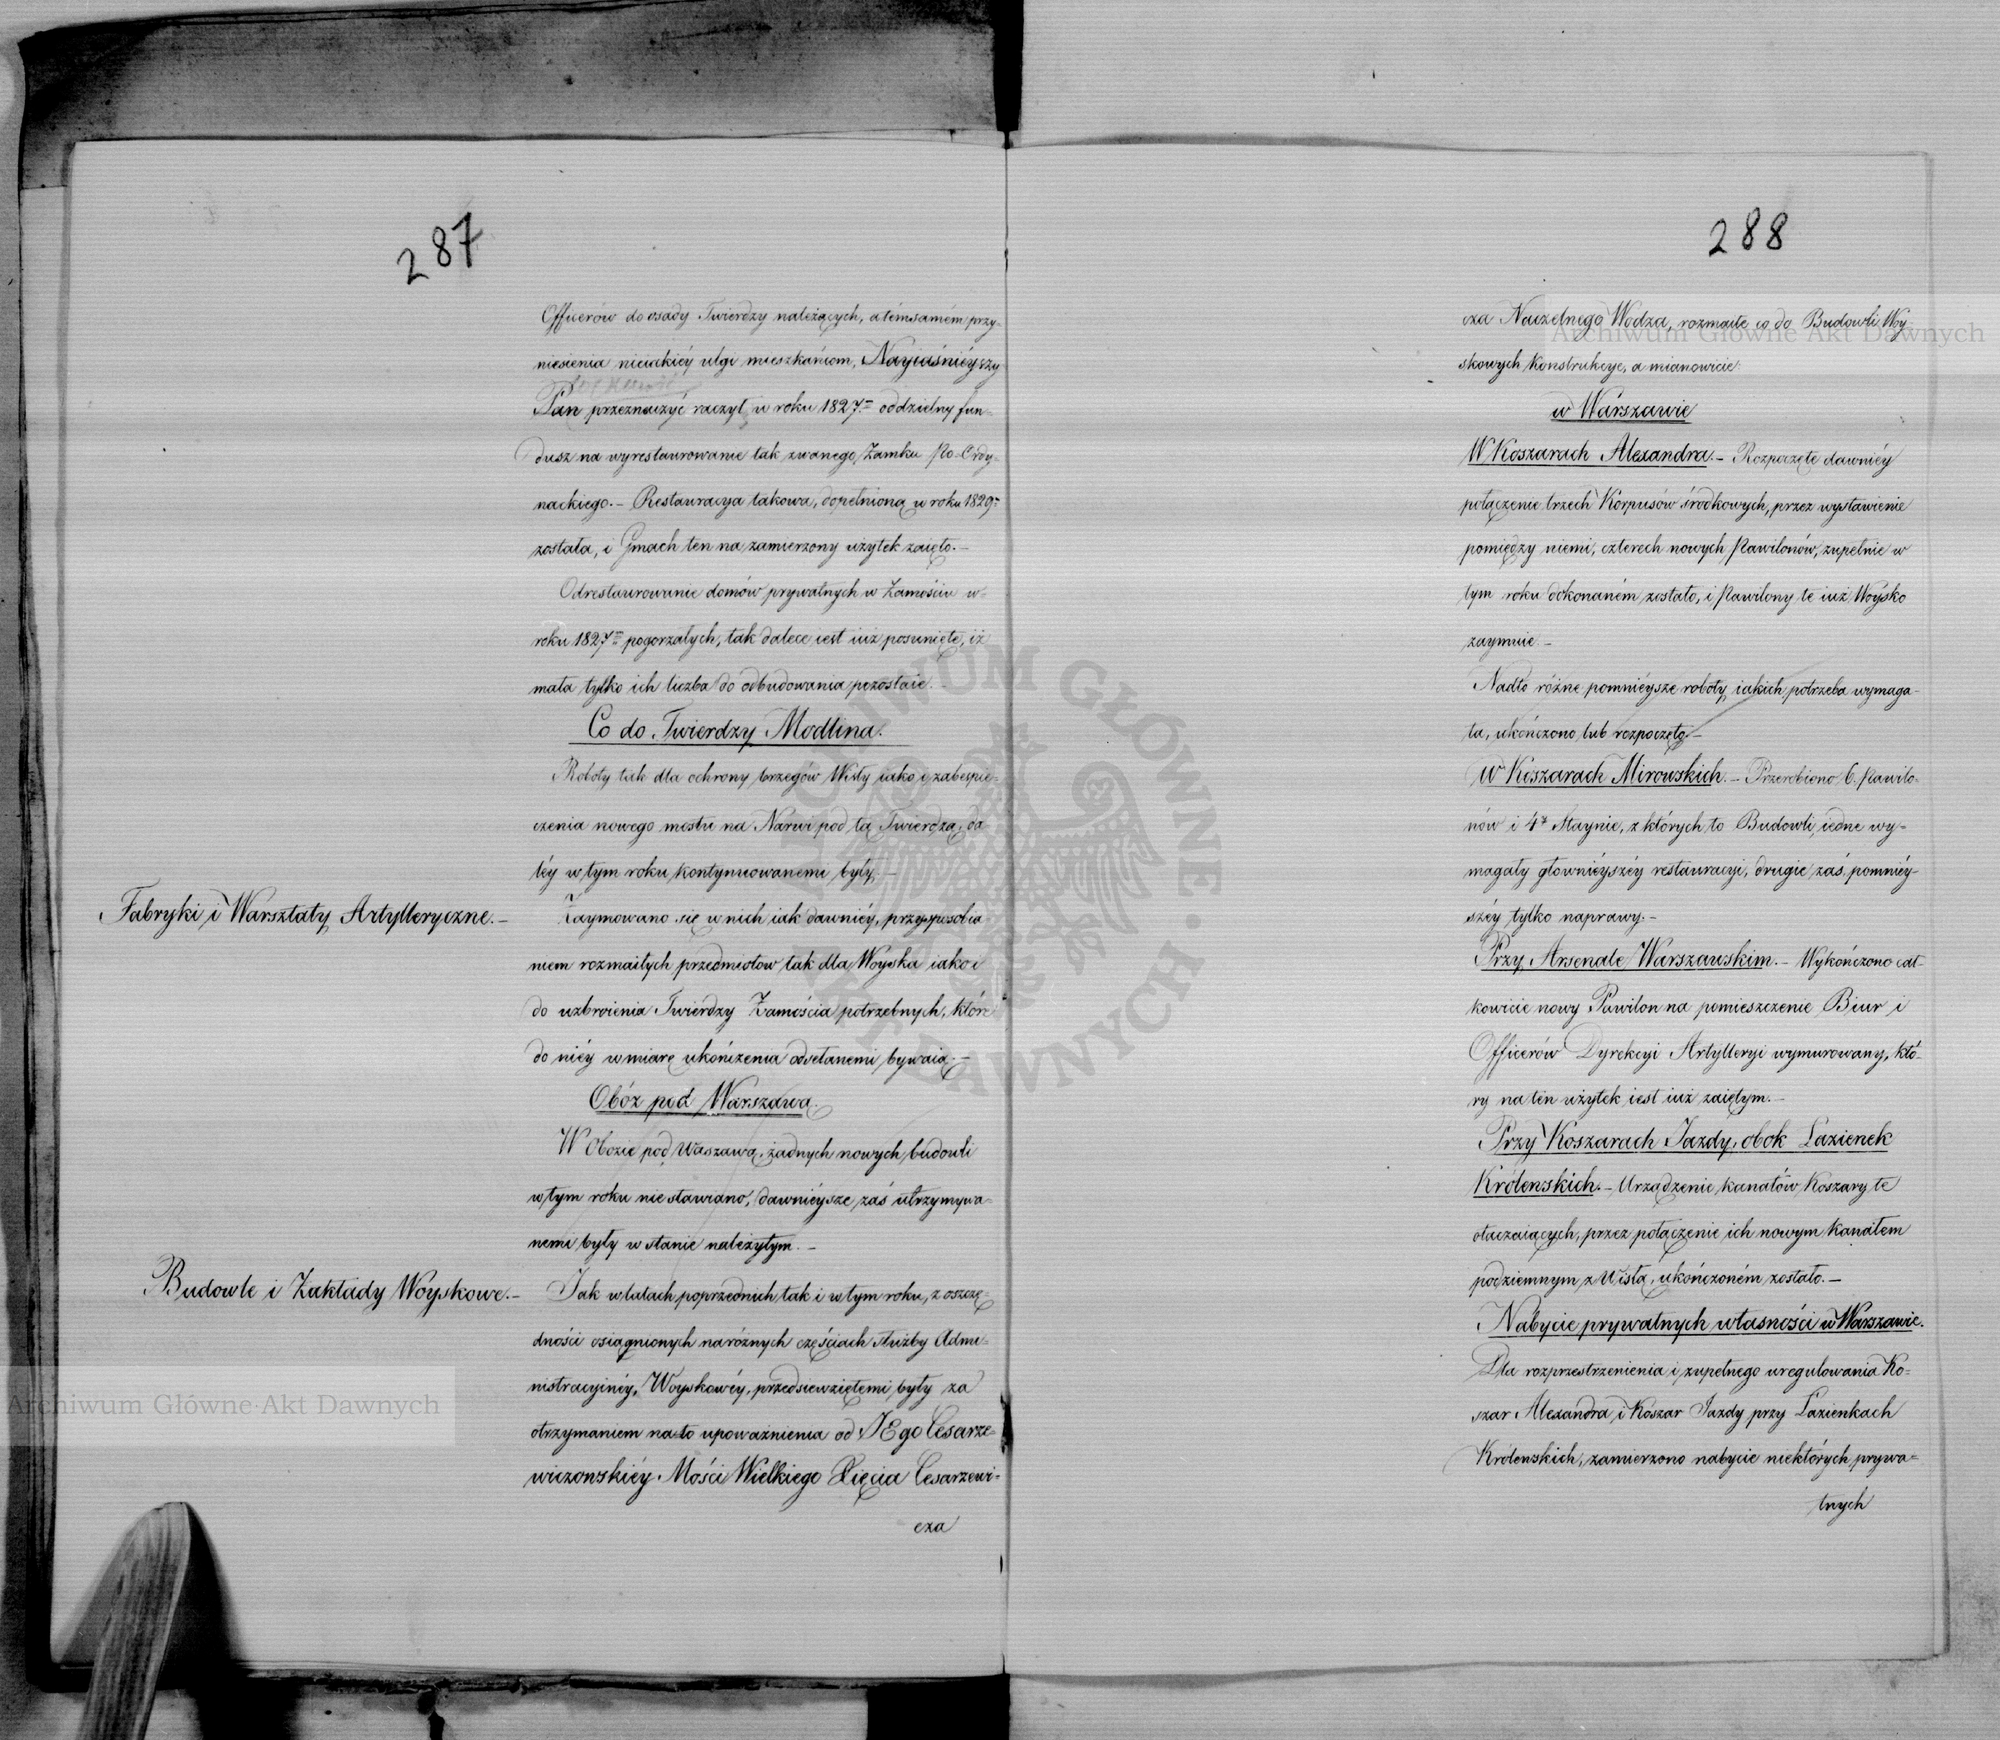 287
Officerów do osady Twierdzy należących, a témsamém przy-
niesienia niejakiéy ulgi mieszkańcom, Nayjaśniéyszy
Pan przeznaczyć raczył w roku 1827. oddzielny fun-
dusz na wyrestaurowanie tak zwanego Zamku Po-Ordy-
nackiego. – Restauracya takowa, dopełnioną w roku 1829.
została, i Gmach ten na zamierzony użytek zaięto. –
Odrestaurowanie domów prywatnych w Zamościu w
roku 1827 pogorzałych, tak dalece iest iuż posunięte, iż
mała tylko ich liczba do odbudowania pozostaie. –
Co do Twierdzy Modlina.
Roboty tak dla ochrony brzegów Wisły iako i zabespie-
czenia nowego mostu na Narwi pod tą Twierdzą, da
léy w tym roku kontynuowanemi były. –
Fabryki i Warsztaty Artylleryczne. –
Zaymowano się w nich iak dawniéy, przysposobia
niem rozmaitych przedmiotow tak dla Woyska iako i
do uzbroienia Twierdzy Zamościa potrzebnych, które
do niéy w miarę ukończenia odsełanemi bywaią. –
Obóz pod Warszawą.
W Obozie pod Waszawą, żadnych nowych budowli
w tym roku nie stawiano, dawniéysze zaś utrzymywa-
nemi były w stanie należytym. –
Budowle i Zakłady Woyskowe. –
Jak w latach poprzednich tak i w tym roku, z oszczę-
dności osiągnionych na różnych częściach służby Admi-
nistracyinéy, Woyskowéy, przedsiewziętemi były za
otrzymaniem na to upoważnienia od JEgo Cesarze-
wiczowskiéy Mości Wielkiego Xięcia Cesarzewi-
cza
288
cza Naczelnego Wodza, rozmaite co do Budowli Woy
skowych konstrukcye, a mianowicie:
w Warszawie
W Koszarach Alexandra. – Rozpoczęte dawniéy
połączenie trzech Korpusów środkowych, przez wystawienie
pomiędzy niemi, czterech nowych Pawilonów, zupełnie w
tym roku dokonaném zostało, i Pawilony te iuż Woysko
zaymuie. –
Nadto różne pomnieysze roboty, iakich potrzeba wymaga-
ła, ukończono lub rozpoczęto –
W Koszarach Mirowskich. – Przerobiono 6. Pawilo-
nów i 4. Staynie, z których to Budowli, iedne wy-
magały głownieyszéy restauracyi, drugie zaś, pomniéy-
széy tylko naprawy. –
Przy Arsenale Warszawskim. – Wykończono cał-
kowicie nowy Pawilon na pomieszczenie Biur i
Officerów Dyrekcyi Artylleryi wymurowany, któ-
ry na ten użytek iest iuż zaiętym. –
Przy Koszarach Jazdy, obok Łazienek
Królewskich. – Urządzenie kanałów Koszary te
otaczaiących, przez połączenie ich nowym kanałem
podziemnym z Wisłą, ukończoném zostało. –
Nabycie prywatnych własności w Warszawie.
Dla rozprzestrzenienia i zupełnego uregulowania Ko-
szar Alexandra, i Koszar Jazdy przy Łazienkach
Królewskich, zamierzono nabycie niektórych prywa-
tnych
Archiwum Główne Akt Dawnych
Archiwum Główne Akt Dawnych
ARCHIWUM GŁÓWNE AKT DAWNYCH